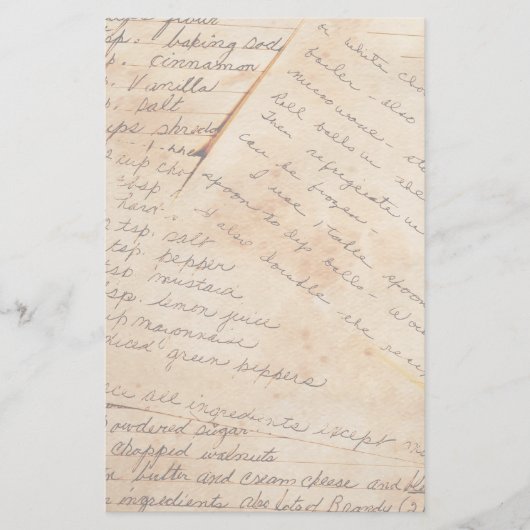 flour
tsp. baking sod
p. cinnamon
p. Vanilla
p. salt
ups shredd
cup cho
tbsp
tsp. salt
tsp. pepper
tsp mustard
sp. lemon juice
up mayonnaise
diced green peppers
or white cho
boiler - also
microwave - ste
Roll balls in the
Then refrigerate in
can be frozen -
I use 1 table spoon
spoon to dip balls - Wou
I also double the reci
all ingredients except
powdered sugar
chopped walnuts
butter and cream cheese and
ingredients Also total Brandy (2